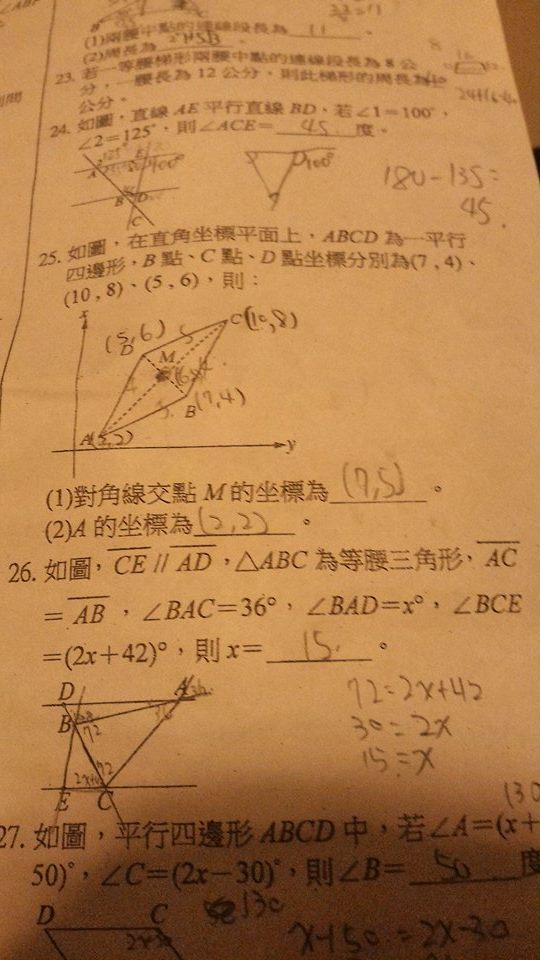 (1)兩腰中點的連線段長為 11 。
(2)周長為
23. 若一等腰梯形兩腰中點的連線段長為 8 公
分，一腰長為 12 公分，則此梯形的周長為 40
公分。
24. 如圖，直線 AE 平行直線 BD，若∠1=100°，
∠2=125°，則∠ACE= 45 度。
180-135=
45
A
B
C
100°
25. 如圖，在直角坐標平面上，ABCD 為一平行
四邊形，B 點、C 點、D 點坐標分別為(7 , 4)、
(10 , 8)、(5 , 6)，則：
(5,6)
D
C(10,8)
M
B(7,4)
A(5,2)
y
(1)對角線交點 M 的坐標為 (7,5) 。
(2)A 的坐標為 (2,2) 。
26. 如圖，CE // AD，△ABC 為等腰三角形，AC
= AB，∠BAC=36°，∠BAD=x°，∠BCE
=(2x+42)°，則 x= 15 。
D
A
B
72
72
E
C
72=2x+42
30=2x
15=x
27. 如圖，平行四邊形 ABCD 中，若∠A=(x+
50)°，∠C=(2x-30)°，則∠B= 50 度
130
D
C
2x-30
x+50=2x-30